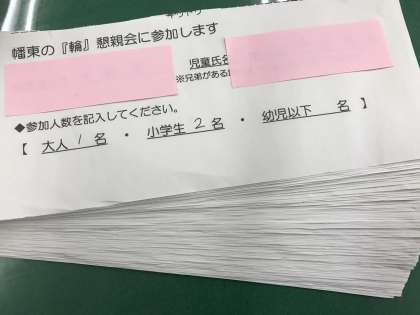 幡東の『輪』懇親会に参加します
児童氏名
※兄弟がある
◆参加人数を記入してください。
【 大人 1 名 ・ 小学生 2 名 ・ 幼児以下 名 】